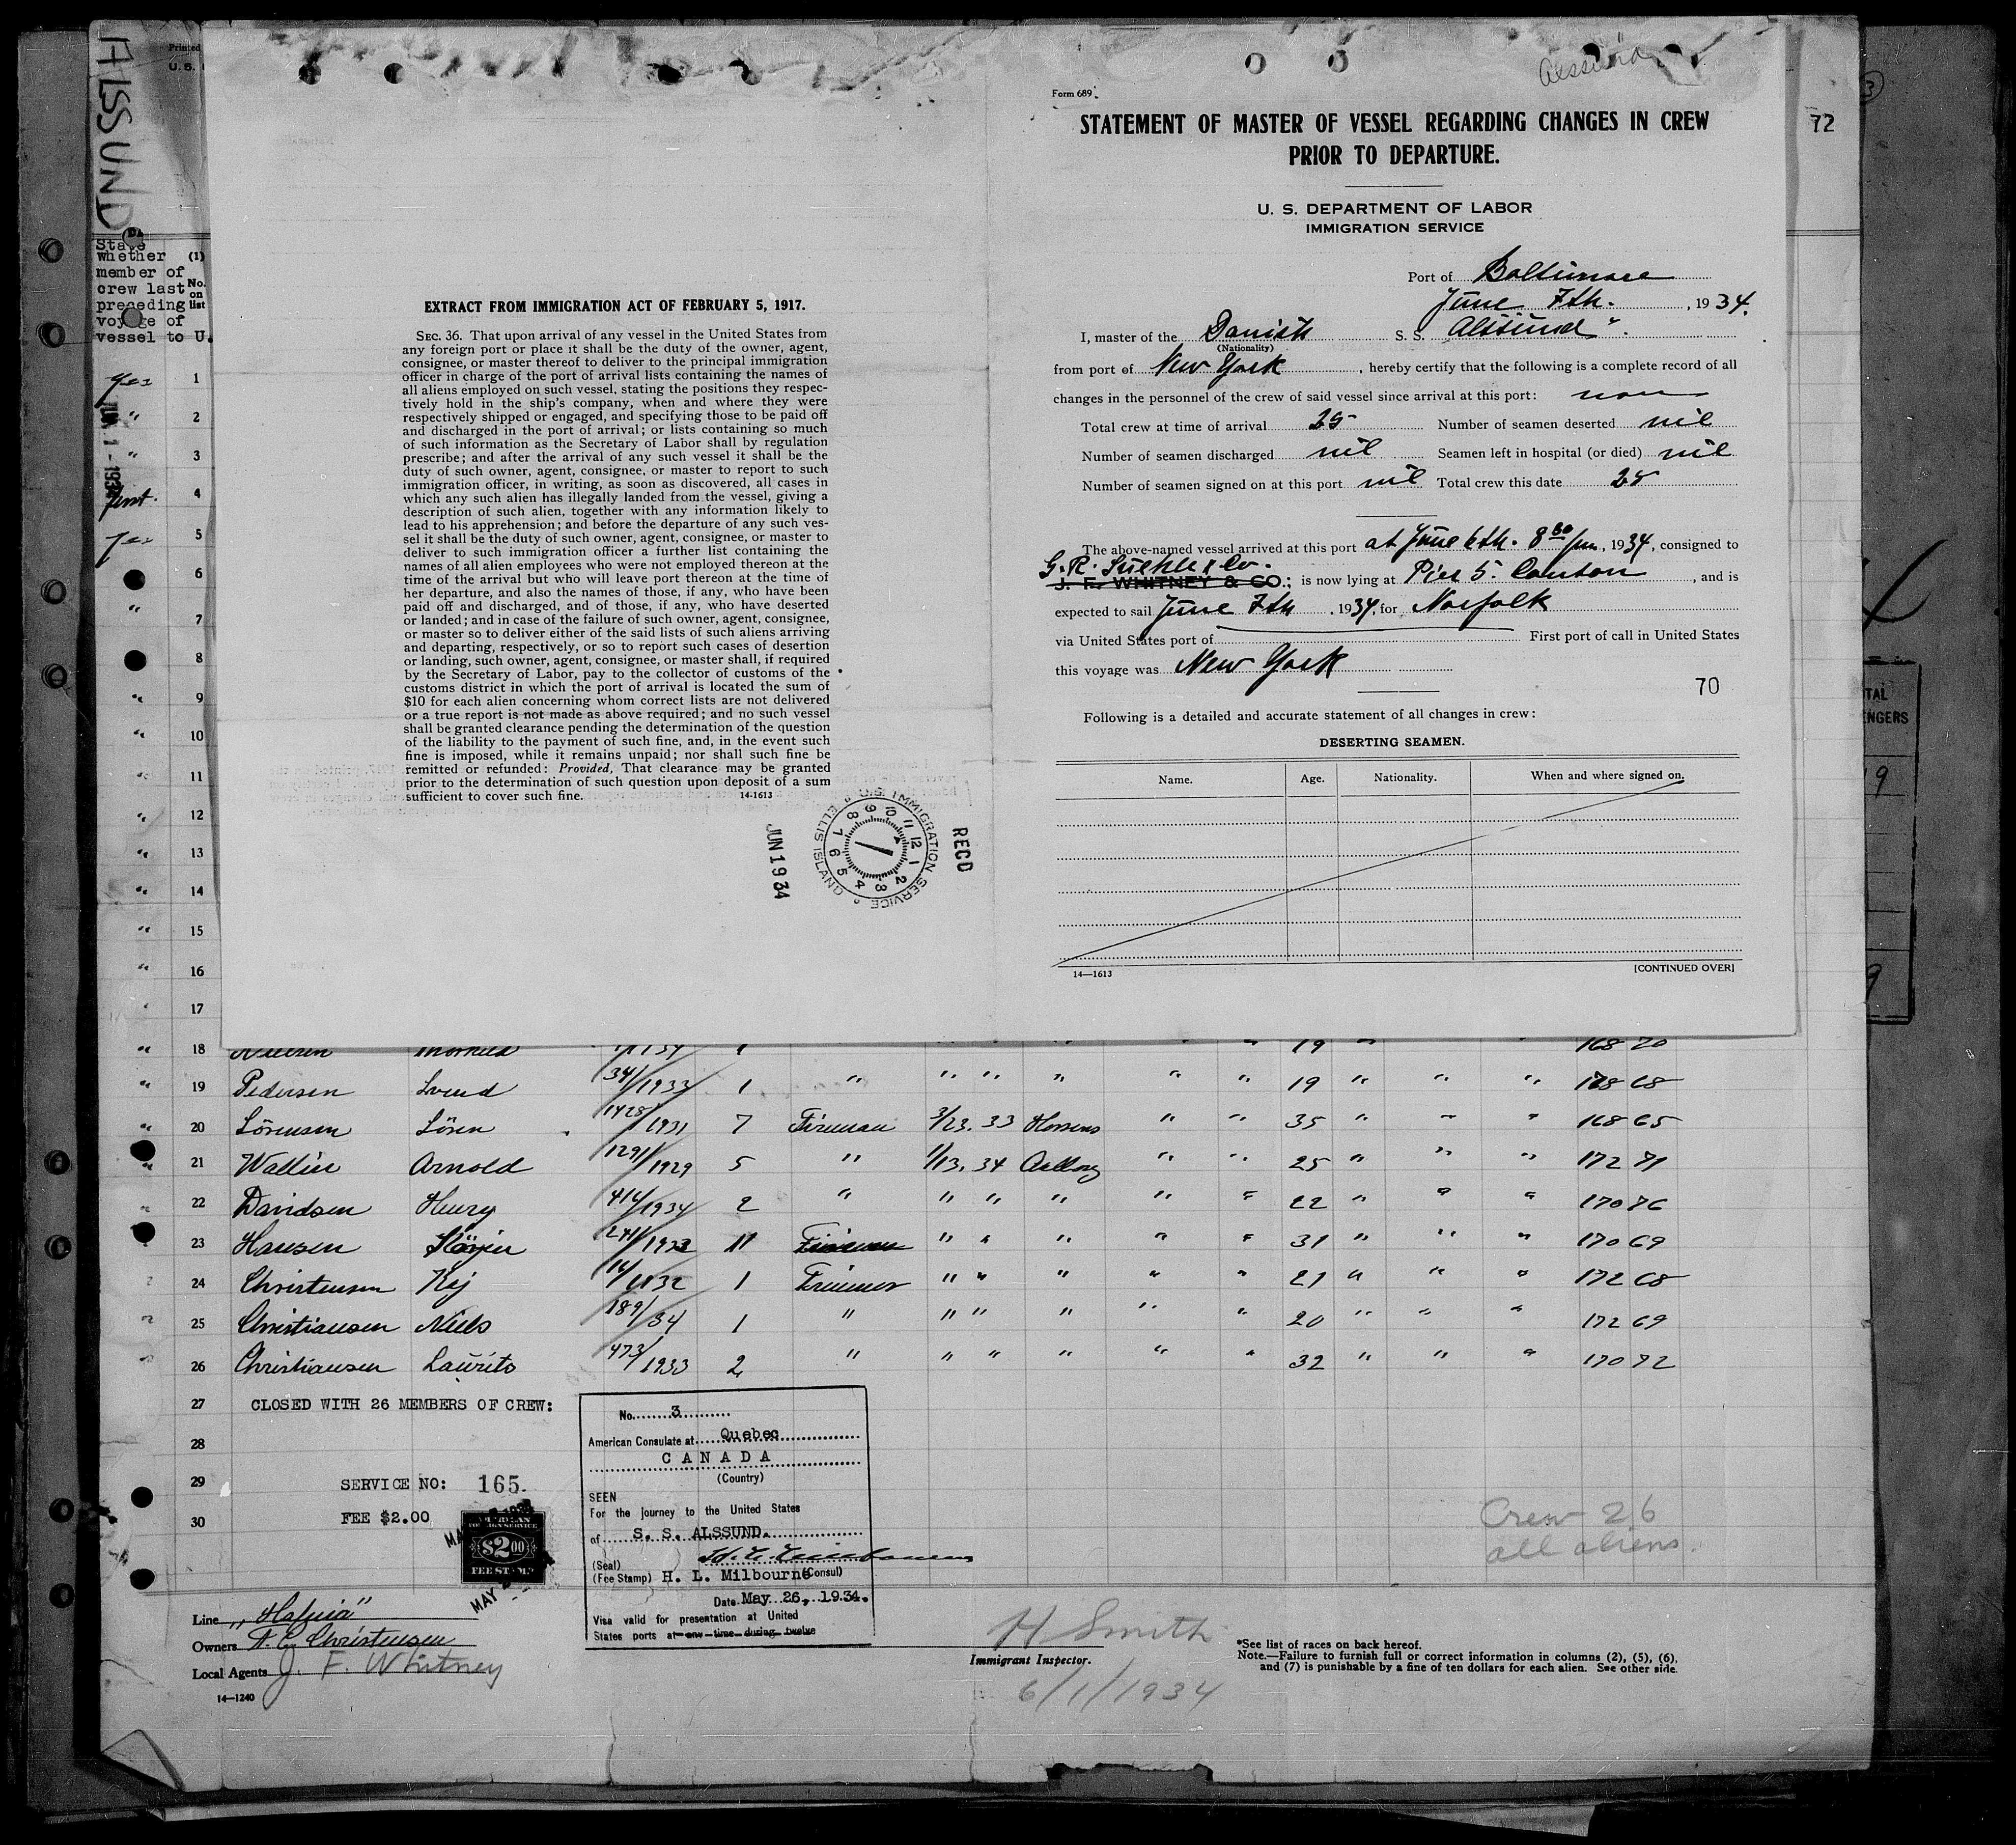 ALSSUND
Printed
U. S.
State
whether
member of
crew last
preceding
voyage of
vessel to U.
(1)
No.
on
list
Alssund
72
Form 689
STATEMENT OF MASTER OF VESSEL REGARDING CHANGES IN CREW
PRIOR TO DEPARTURE.
U. S. DEPARTMENT OF LABOR
IMMIGRATION SERVICE
Port of Baltimore
June 7th. , 1934.
I, master of the Danish S. S. Alssund".
(Nationality)
from port of New York , hereby certify that the following is a complete record of all
changes in the personnel of the crew of said vessel since arrival at this port:
Total crew at time of arrival 25 Number of seamen deserted nil
Number of seamen discharged nil Seamen left in hospital (or died) nil
Number of seamen signed on at this port nil Total crew this date 25
The above-named vessel arrived at this port at June 6th. 8 pm, 1934, consigned to
G. R. & Co.
J. F. WHITNEY & CO.; is now lying at Pier 5. Canton , and is
expected to sail June 7th . 1934, for Norfolk
via United States port of First port of call in United States
this voyage was New York
70
Following is a detailed and accurate statement of all changes in crew:
DESERTING SEAMEN.
Name. Age. Nationality. When and where signed on.
14—1613 [CONTINUED OVER]
EXTRACT FROM IMMIGRATION ACT OF FEBRUARY 5, 1917.
SEC. 36. That upon arrival of any vessel in the United States from
any foreign port or place it shall be the duty of the owner, agent,
consignee, or master thereof to deliver to the principal immigration
officer in charge of the port of arrival lists containing the names of
all aliens employed on such vessel, stating the positions they respec-
tively hold in the ship's company, when and where they were
respectively shipped or engaged, and specifying those to be paid off
and discharged in the port of arrival; or lists containing so much
of such information as the Secretary of Labor shall by regulation
prescribe; and after the arrival of any such vessel it shall be the
duty of such owner, agent, consignee, or master to report to such
immigration officer, in writing, as soon as discovered, all cases in
which any such alien has illegally landed from the vessel, giving a
description of such alien, together with any information likely to
lead to his apprehension; and before the departure of any such ves-
sel it shall be the duty of such owner, agent, consignee, or master to
deliver to such immigration officer a further list containing the
names of all alien employees who were not employed thereon at the
time of the arrival but who will leave port thereon at the time of
her departure, and also the names of those, if any, who have been
paid off and discharged, and of those, if any, who have deserted
or landed; and in case of the failure of such owner, agent, consignee,
or master so to deliver either of the said lists of such aliens arriving
and departing, respectively, or so to report such cases of desertion
or landing, such owner, agent, consignee, or master shall, if required
by the Secretary of Labor, pay to the collector of customs of the
customs district in which the port of arrival is located the sum of
$10 for each alien concerning whom correct lists are not delivered
or a true report is not made as above required; and no such vessel
shall be granted clearance pending the determination of the question
of the liability to the payment of such fine, and, in the event such
fine is imposed, while it remains unpaid; nor shall such fine be
remitted or refunded: Provided, That clearance may be granted
prior to the determination of such question upon deposit of a sum
sufficient to cover such fine. 14-1613
JUN 1 9 34
U.S. IMMIGRATION SERVICE
ELLIS ISLAND
RECD
TAL
NGERS
yes 1
" 2
" 3
JUN 1 - 1934
first. 4
yes 5
6
" 7
8
" 9
" 10
" 11
" 12
" 13
" 14
" 15
" 16
17
" 18 19 " " 168 70
" 19 Pedersen Svend 34/1933 1 " " " " " " 19 " " " 178 68
" 20 Sörensen Sören 1428/1931 7 Fireman 3/23. 33 Horsens " " 35 " " " 168 65
" 21 Wallin Arnold 1291/1929 5 " 1/13. 34 Aalborg " " 25 " " " 172 71
" 22 Davidsen Henry 414/1934 2 " " " " " " 22 " " " 170 76
23 Hansen 241/1923 11 Fireman " " " " " 31 " " " 170 69
24 Christensen Kaj 14/1132 1 Trimmer " " " " " 21 " " " 172 68
25 Christiansen Niels 189/34 1 " " " " " " 20 " " " 172 69
26 Christiansen Laurits 473/1933 2 " " " " " " 32 " " " 170 72
27 CLOSED WITH 26 MEMBERS OF CREW:
28
29 SERVICE NO: 165.
30 FEE $2.00
AMERICAN
FOREIGN SERVICE
$2 00
FEE STAMP
MAY
No. 3
American Consulate at Quebec
CANADA
(Country)
SEEN
For the journey to the United States
of S. S. ALSSUND.
(Seal)
(Fee Stamp) H. L. Milbourne (Consul)
Date May 26, 1934.
Visa valid for presentation at United
States ports at any time during twelve
Crew 26
all aliens.
Line "Hafnia"
Owners A. E. Christensen
Local Agents J. F. Whitney
14—1240
H Smith
Immigrant Inspector.
6/1/1934
*See list of races on back hereof.
Note.—Failure to furnish full or correct information in columns (2), (5), (6),
and (7) is punishable by a fine of ten dollars for each alien. See other side.